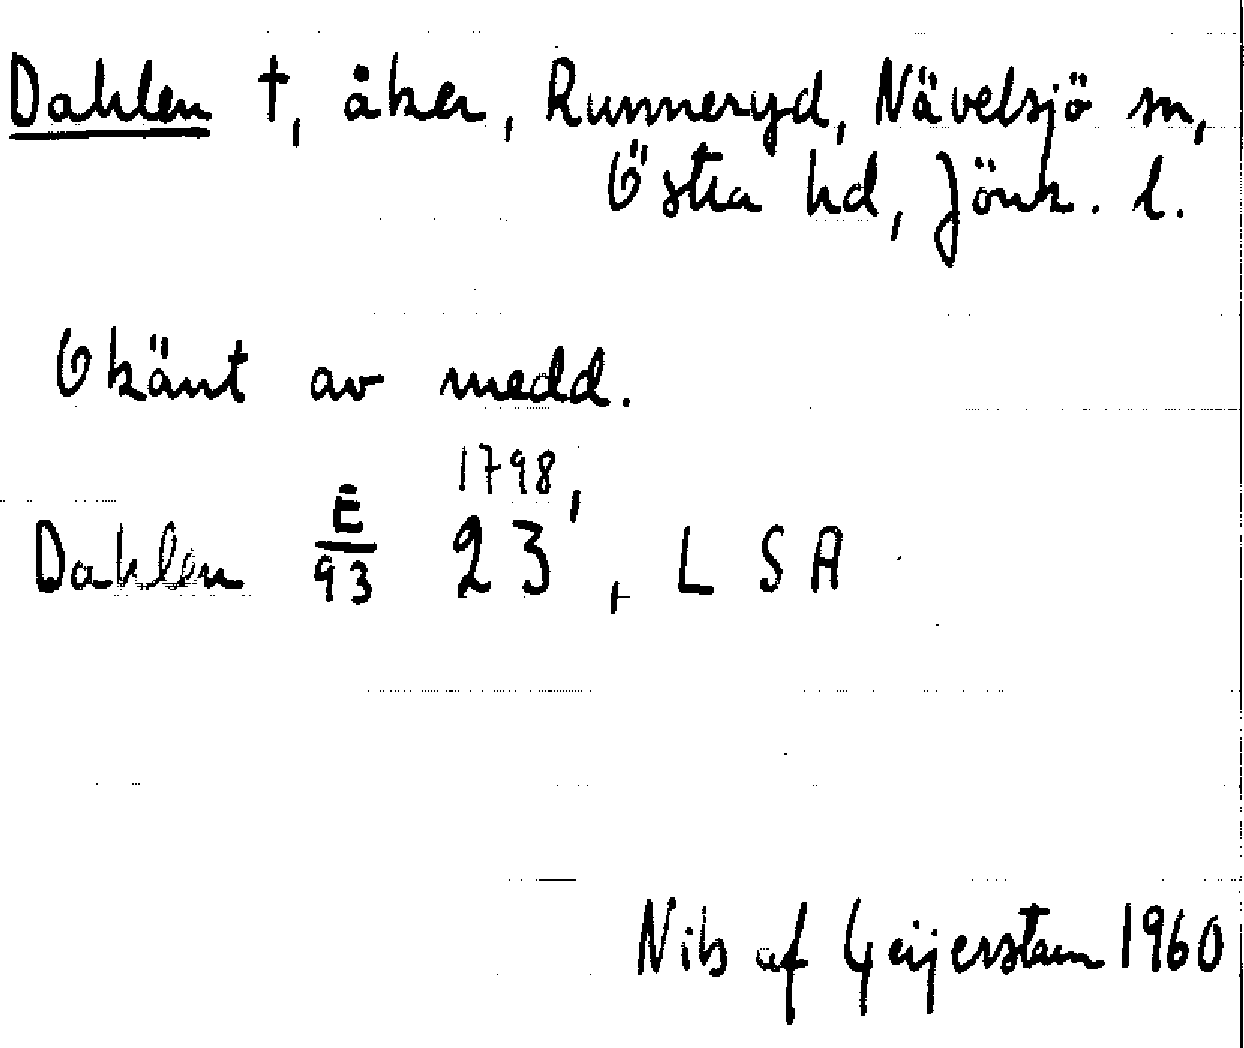 Dahlen †, åker, Runneryd, Nävelsjö sn,
Östra hd, Jönk. l.
Okänt av medd.
1798,
Dahlen E/93 23, LSA
Nils af Geijerstam 1960